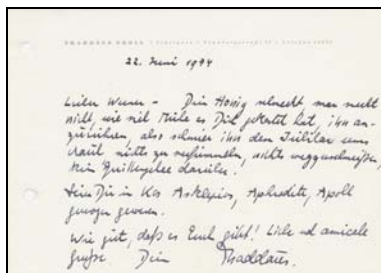 22. Juni 1994
Lieber Werner – Dein Honig schmeckt man merkt
nicht, wie viel Mühe es Dich gekostet hat, ihn an-
zurühren, also schmier ihn dem ums
Maul nichts zu verschimmeln, nichts wegzuschmeißen,
kein darüber.
Sein Dir in Kos Asklepios, Aphrodite, Apoll
gewogen gewesen.
Wie gut, daß es Euch gibt! Liebe und amicale
Grüße Dein Thaddäus.